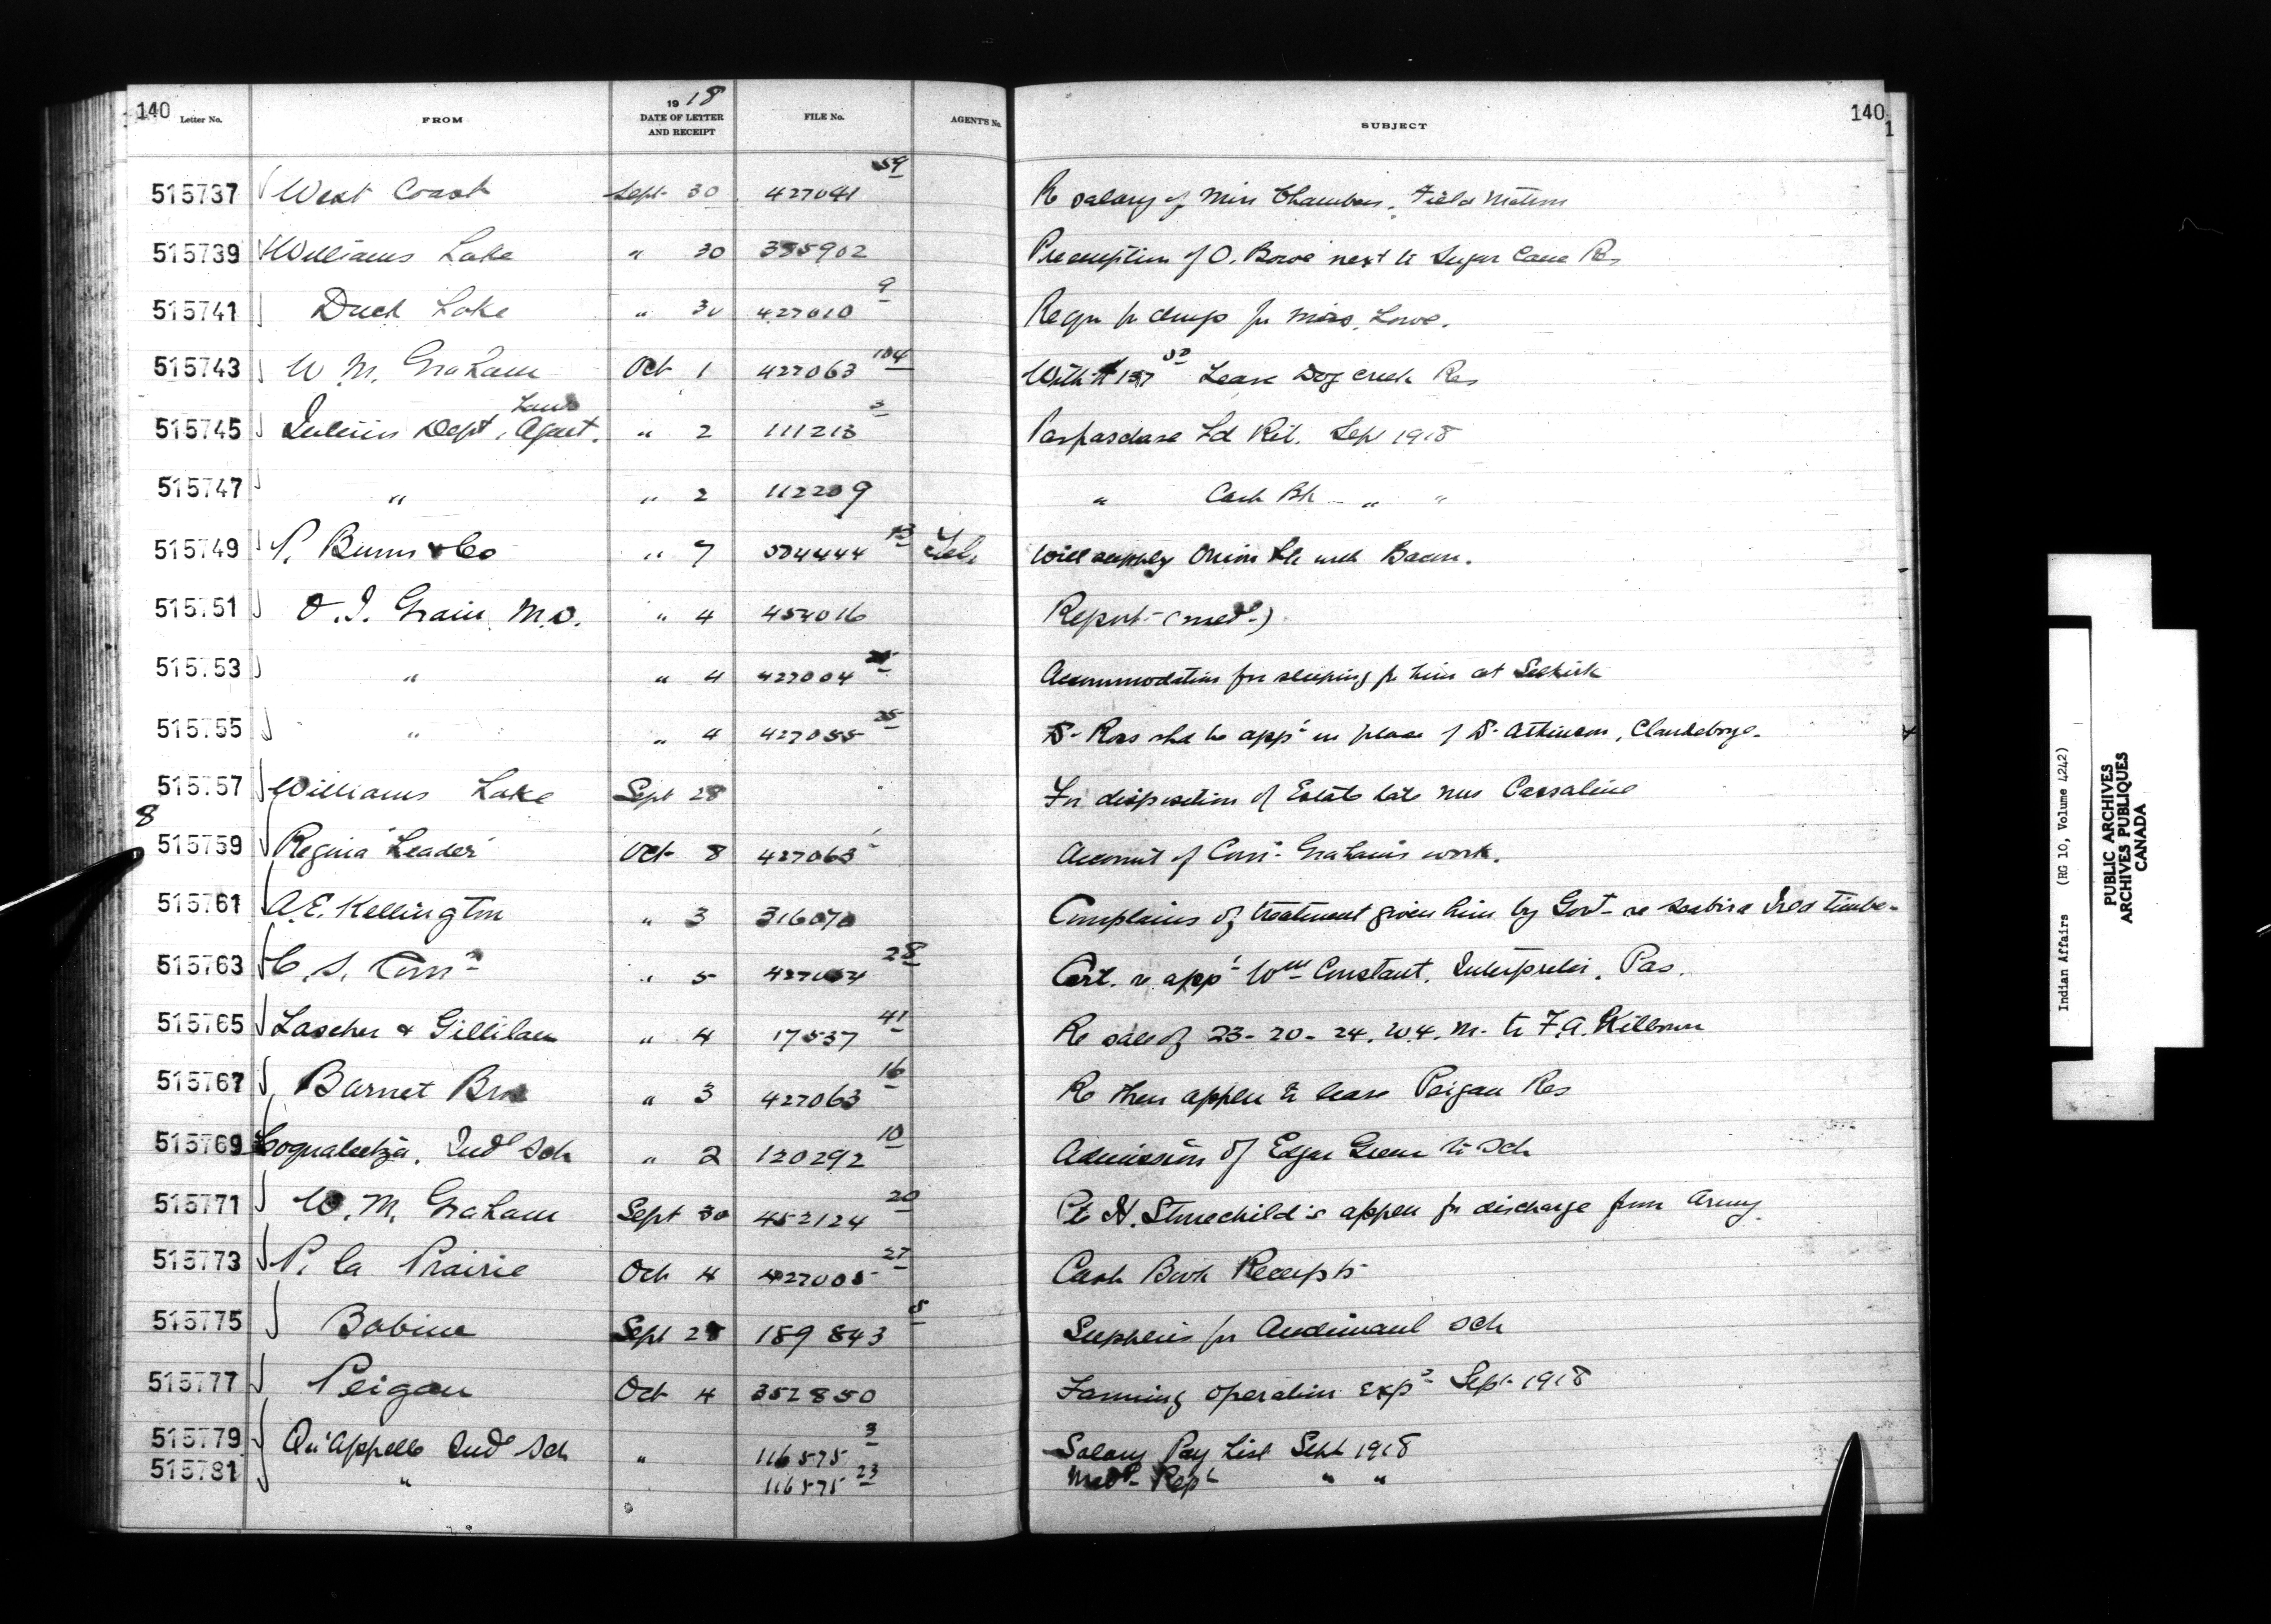 140 Letter No. FROM 1918 DATE OF LETTER AND RECEIPT FILE No. AGENT'S No. SUBJECT 140 1
515737 West Coast Sept 30 427041 59 Re salary of Miss Chambers, Field Matron
515739 Williams Lake " 30 335902 Preemption of O. Bowe next to Sugar Cane Res
515741 Duck Lake " 30 427010 9 Reqn for drugs for Miss Lowe.
515743 W M. Graham Oct 1 427063 104 With $137 50 Lease Dog Creek Res
515745 Interior Dept, Land Agent. " 2 111213 3 Paspaschase Ld Ret. Sep 1918
515747 " " 2 112209 " Cash Bk - " "
515749 P. Burns & Co " 7 504444 13 Tel. Will supply Onion Lk with Bacon.
515751 O. I. Grain, M.D. " 4 454016 Report - (med l)
515753 " " 4 427004 Accommodation for sleeping for him at Selkirk
515755 " " 4 427055 25 Dr Ross shd be app t in place of Dr Atkinson, Clandeboye.
515757 Williams Lake Sept 28 For disposition of Estate late Mrs Cassaline
8
515759 Regina "Leader" Oct 8 427063 1 Account of Com r Graham's work.
515761 A.E. Kellington " 3 316070 Complains of treatment given him by Govt re Ind timber
515763 C. S. Com n " 5 427054 28 Cert. re app t Wm Constant, Interpreter, Pas.
515765 Lascher & Gillilan " 4 17537 41 Re sale of 23-20-24. W.4. M. to F.A. Kilbourn
515767 Barnet Bros " 3 427063 16 Re their appln to lease Peigan Res
515769 Coqualeetza, Ind l Sch " 2 120292 10 Admission of Edgar Green to Sch
515771 W. M. Graham Sept 30 452124 20 Pte H. Stonechild's appln for discharge from Army.
515773 P. la Prairie Oct 4 427005 27 Cash Book Receipts
515775 Babine Sept 28 189843 5 Supplies for Andimaul Sch
515777 Peigan Oct 4 352850 Farming operation exp s Sept 1918
515779 Qu'Appelle Ind l Sch " 116575 3 Salary Pay List Sept 1918
515781 " 116575 23 Med l Rep t " "
Indian Affairs (RG 10, Volume 4242)
PUBLIC ARCHIVES
ARCHIVES PUBLIQUES
CANADA